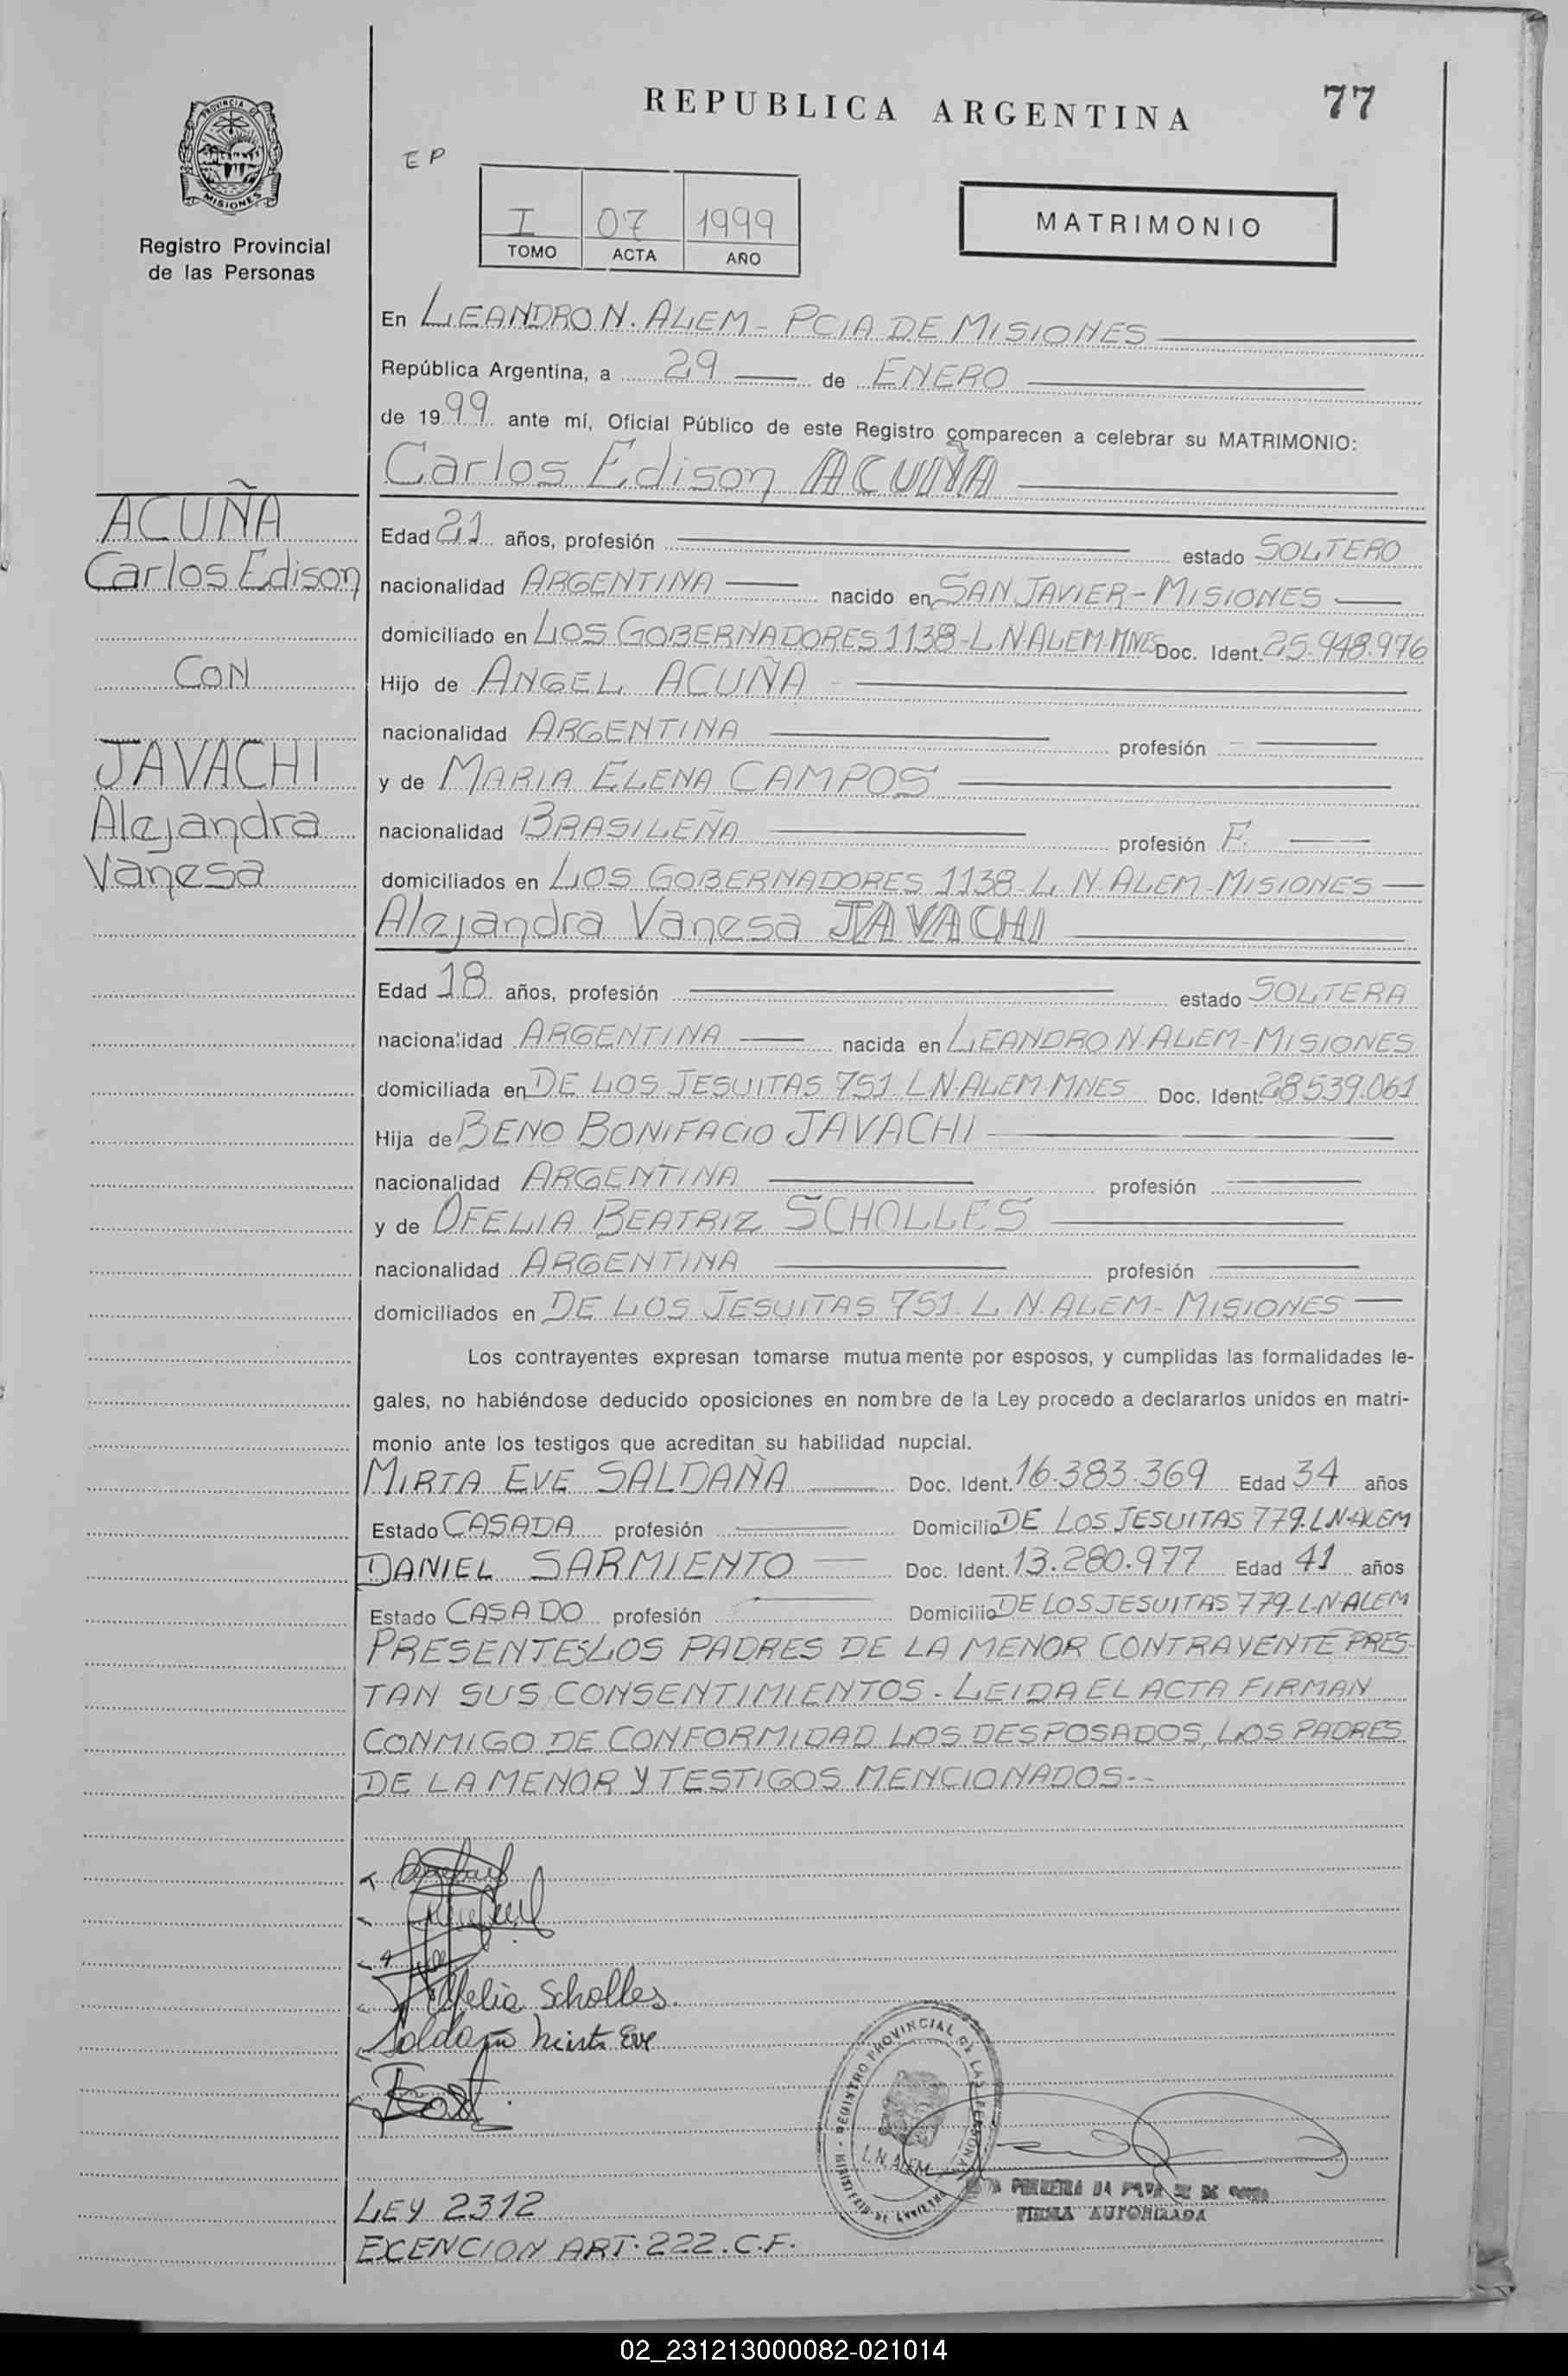 REPUBLICA ARGENTINA
77
PROVINCIA DE
MISIONES
Registro Provincial
de las Personas
EP
I 07 1999
TOMO ACTA AÑO
MATRIMONIO
En LEANDRO N. ALEM - PCIA DE MISIONES
República Argentina, a 29 de ENERO
de 1999 ante mí, Oficial Público de este Registro comparecen a celebrar su MATRIMONIO:
Carlos Edison ACUÑA
ACUÑA
Carlos Edison
CON
JAVACHI
Alejandra
Vanesa
Edad 21 años, profesión estado SOLTERO
nacionalidad ARGENTINA nacido en SAN JAVIER - MISIONES
domiciliado en LOS GOBERNADORES 1138 - L.N.ALEM-MNES Doc. Ident. 25.948.976
Hijo de ANGEL ACUÑA
nacionalidad ARGENTINA profesión
y de MARIA ELENA CAMPOS
nacionalidad BRASILEÑA profesión F.
domiciliados en LOS GOBERNADORES 1138 - L.N. ALEM - MISIONES
Alejandra Vanesa JAVACHI
Edad 18 años, profesión estado SOLTERA
nacionalidad ARGENTINA nacida en LEANDRO N. ALEM - MISIONES
domiciliada en DE LOS JESUITAS 751 L N. ALEM-MNES Doc. Ident. 28539.061
Hija de BENO BONIFACIO JAVACHI
nacionalidad ARGENTINA profesión
y de OFELIA BEATRIZ SCHOLLES
nacionalidad ARGENTINA profesión
domiciliados en DE LOS JESUITAS 751 - L.N. ALEM - MISIONES
Los contrayentes expresan tomarse mutuamente por esposos, y cumplidas las formalidades le-
gales, no habiéndose deducido oposiciones en nombre de la Ley procedo a declararlos unidos en matri-
monio ante los testigos que acreditan su habilidad nupcial.
MIRTA EVE SALDAÑA Doc. Ident. 16.383.369 Edad 34 años
Estado CASADA profesión Domicilio DE LOS JESUITAS 779-L.N-ALEM
DANIEL SARMIENTO Doc. Ident. 13.280.977 Edad 41 años
Estado CASADO profesión Domicilio DE LOS JESUITAS 779-L.N-ALEM
PRESENTES LOS PADRES DE LA MENOR CONTRAYENTE PRES-
TAN SUS CONSENTIMIENTOS - LEIDA EL ACTA FIRMAN
CONMIGO DE CONFORMIDAD LOS DESPOSADOS, LOS PADRES
DE LA MENOR Y TESTIGOS MENCIONADOS--
Ofelia Scholles.
Saldaño Mirta Eve
REGISTRO PROVINCIAL DE LAS PERSONAS
L.N. ALEM
FIRMA AUTORIZADA
LEY 2312
EXENCION ART. 222. C.F.
02_231213000082-021014